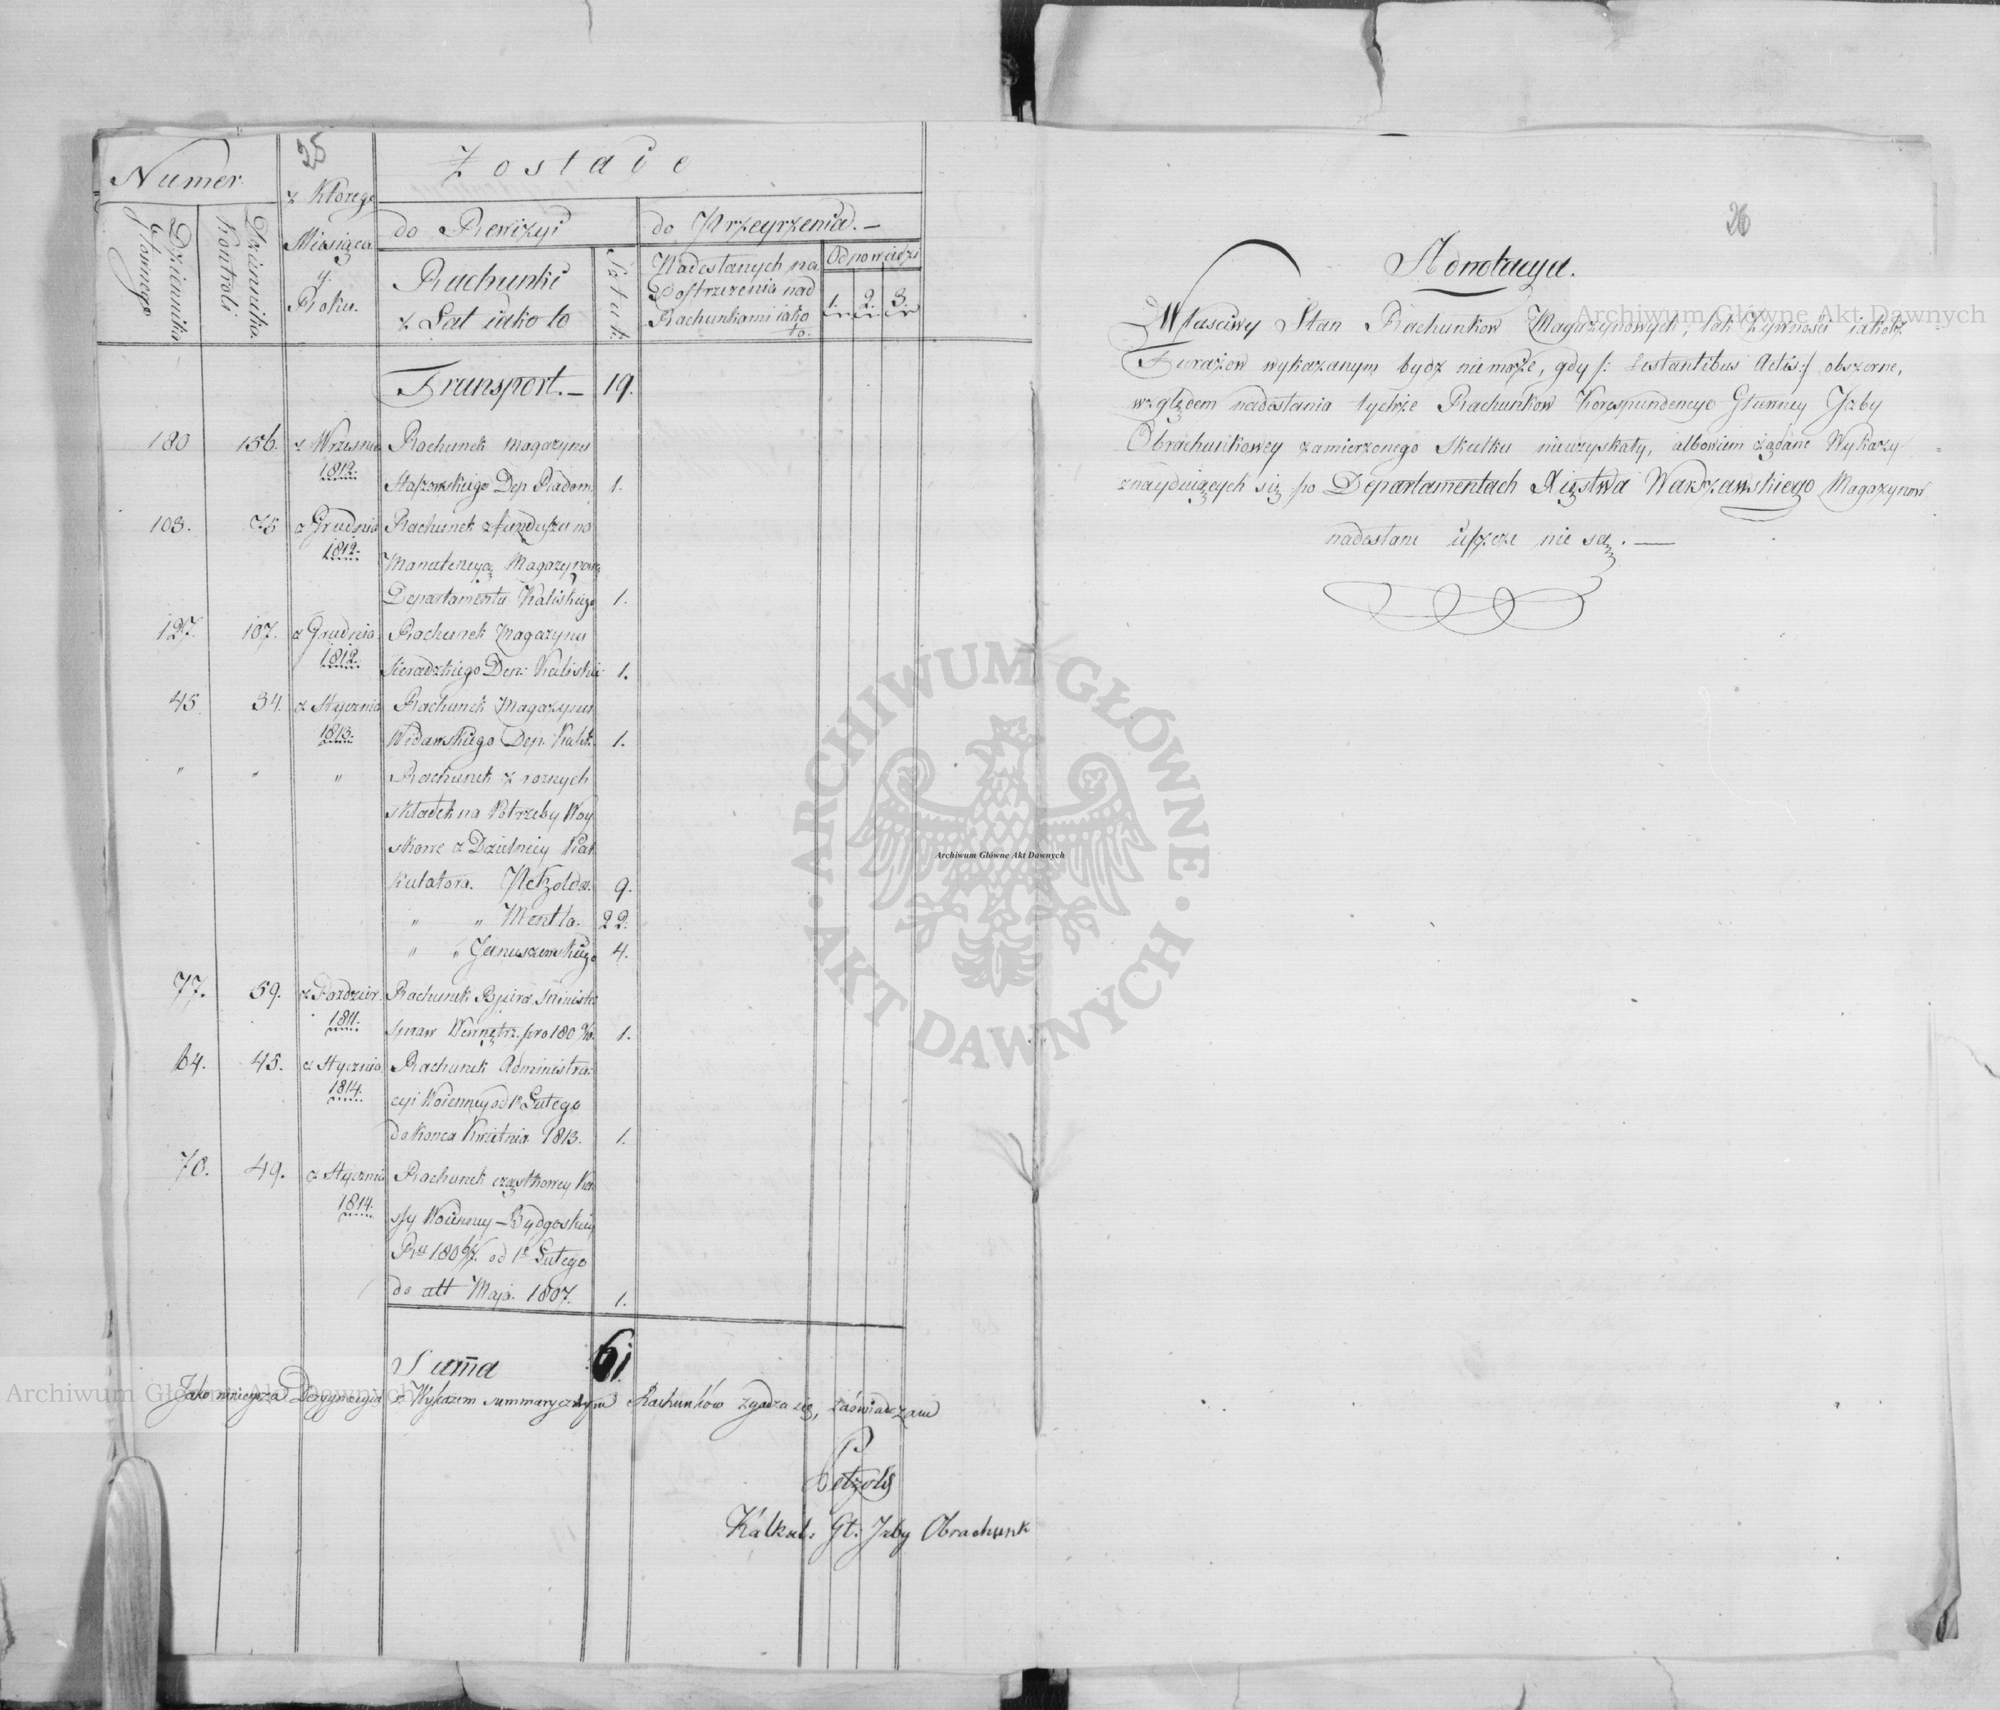 25
Numer.
Dziennika Głownego
Dziennika Kontroli
z Ktorego Miesiąca y Roku.
Zostaie
do Rewizyi
Rachunki z Lat iako to
Sztuk.
do Przeyrzenia.—
Nadesłanych na
Postrzeżenia nad
Rachunkami iako
to.
Odpowiedzi
1. 2. 3.
Transport.— 19.
180 156. z Wrzesnia Rachunek Magazynu
1812. Staszowskiego Dep Radom. 1.
103. 75 z Grudnia Rachunek z funduszu na
1812. Manutencyą Magazynow
Departamentu Kaliskiego 1.
127. 107. z Grudnia Rachunek Magazynu
1812. Sieradzkiego Dep: Kaliski: 1.
45. 34. z Stycznia Rachunek Magazynu
1813. Widawskiego Dep. Kalis. 1.
" " " Rachunek z roznych
składek na Potrzeby Woy
skowe z Dzielnicy Kal
kulatora. Petzolda. 9.
" " Mentla. 22.
" " Januszewskiego 4.
77. 59. z Pazdzier. Rachunek Biura Minist.
1811. Spraw Wewnętrz. pro 180 1.
64. 45. z Stycznia Rachunek Administra:
1814. cyi Woienney od 1º Lutego
do Konca Kwietnia 1813. 1.
70. 49. z Stycznia Rachunek cząstkowey Ka
1814. ssy Woienney – Bydgoskiey
180 6/7. od 1º Lutego
do ult Maja. 1807. 1.
Suma 61.
Jako ninieysza Dezygnacya z Wykazem summarycznym Rachunków zgadza się, zaświadczam
Petzold
Kalkul. Gł: Izby Obrachunk
26
Adnotacya.
Własciwy Stan Rachunkow Magazynowych, tak Zywnosci iakotez
Furażow wykazanym bydz niemoże, gdy /: testantibus Actis:/ obszerne,
względem nadesłania tychże Rachunkow Korespondencye Głowney Izby
Obrachunkowey zamierzonego Skutku nieuzyskały, albowiem żądane Wykazy
znayduiących się po Departamentach Xięstwa Warszawskiego Magazynow
nadesłane ieszcze nie są.—
Archiwum Główne Akt Dawnych
ARCHIWUM GŁÓWNE · AKT DAWNYCH ·
Archiwum Główne Akt Dawnych
Archiwum Główne Akt Dawnych